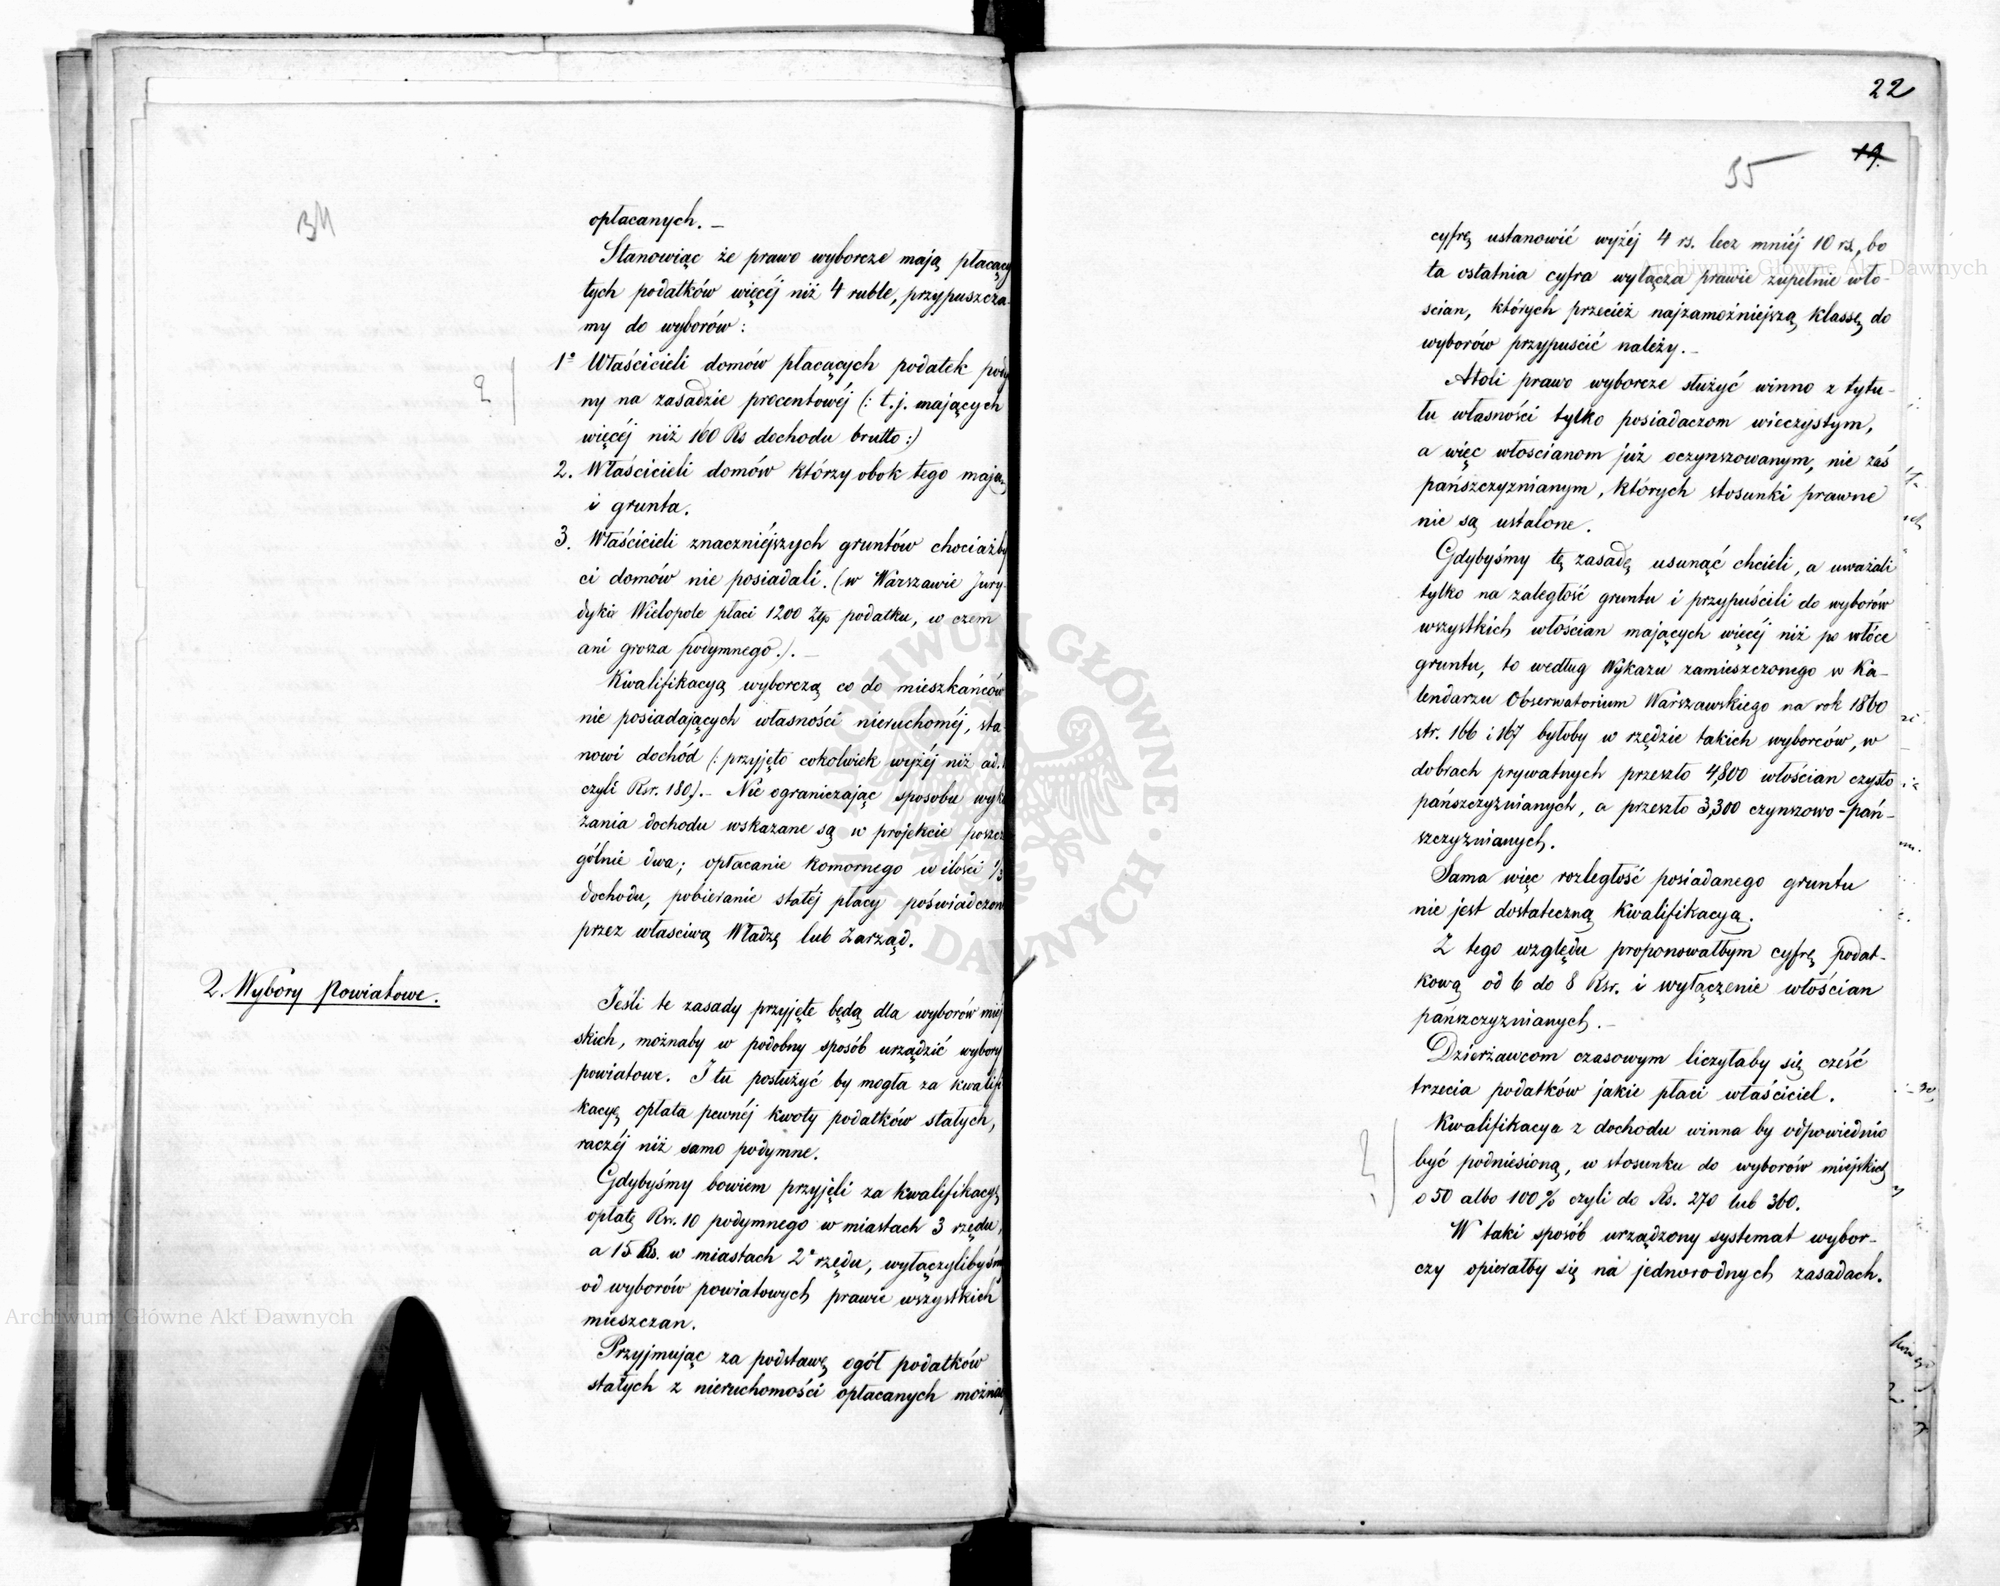 opłacanych. —
Stanowiąc że prawo wyborcze mają płacący
tych podatków więcéj niż 4 ruble, przypuszcza-
my do wyborów:
1º Właścicieli domów płacących podatek pody
ny na zasadzie procentowéj (: t.j. mających
więcéj niż 160 Rs dochodu brutto :)
2. Właścicieli domów którzy obok tego mają
i grunta.
3. Właścicieli znaczniéjszych gruntów chociażby
ci domów nie posiadali. (w Warszawie Jury-
dyka Wielopole płaci 1200 Złp podatku, w czem
ani grosza podymnego.). —
Kwalifikacyą wyborczą co do mieszkańców
nie posiadających własności nieruchoméj, sta
nowi dochód (: przyjęto cokolwiek wyżéj niż ad.
czyli Rsr. 180). — Nie ograniczając sposobu wyka
zania dochodu wskazane są w projekcie poszcze
gólnie dwa; opłacanie komornego w ilości 1/3
dochodu, pobieranie stałéj płacy poświadczon
przez właściwą Władzę lub Zarząd.
2. Wybory Powiatowe.
Jeśli te zasady przyjęte będą dla wyborów miéj
skich, możnaby w podobny sposób urządzić wybory
powiatowe. I tu posłużyć by mogła za kwalifi
kacyę opłata pewnéj kwoty podatków stałych,
raczéj niż samo podymne.
Gdybyśmy bowiem przyjęli za kwalifikacyę
opłatę Rsr. 10 podymnego w miastach 3 rzędu,
a 15 Rs. w miastach 2º rzędu, wyłączylibyśmy
od wyborów powiatowych prawie wszystkich
mieszczan.
Przyjmując za podstawę ogół podatków
stałych z nieruchomości opłacanych możnaby
22
19.
35
cyfrę ustanowić wyżéj 4 rs. lecz mniéj 10 rs., bo
ta ostatnia cyfra wyłącza prawie zupełnie wło-
ścian, których przecież najzamożniejszą klassę do
wyborów przypuścić należy. —
Atoli prawo wyborcze służyć winno z tytu-
łu własności tylko posiadaczom wieczystym,
a więc włościanom już oczynszowanym, nie zaś
pańszczyznianym, których stosunki prawne
nie są ustalone.
Gdybyśmy tę zasadę usunąć chcieli, a uważali
tylko na zaległość gruntu i przypuścili do wyborów
wszystkich włościan mających więcéj niż po włóce
gruntu, to według Wykazu zamieszczonego w Ka-
lendarzu Obserwatorium Warszawskiego na rok 1860
str. 166 i 167 byłoby w rzędzie takich wyborców, w
dobrach prywatnych przeszło 4,800 włościan czysto
pańszczyznianych, a przeszło 3,300 czynszowo-pań-
szczyznianych.
Sama więc rozległość posiadanego gruntu
nie jest dostateczną kwalifikacyą.
Z tego względu proponowałbym cyfrę podat-
kową od 6 do 8 Rsr. i wyłączenie włościan
pańszczyznianych. —
Dzierżawcom czasowym liczyłaby się cześć
trzecia podatków jakie płaci właściciel.
Kwalifikacya z dochodu winna by odpowiednio
być podniesioną, w stosunku do wyborów miejskich
o 50 albo 100% czyli do Rs. 270 lub 360.
W taki sposób urządzony systemat wybor-
czy opierałby się na jednorodnych zasadach.
Archiwum Główne Akt Dawnych
Archiwum Główne Akt Dawnych
ARCHIWUM GŁÓWNE AKT DAWNYCH